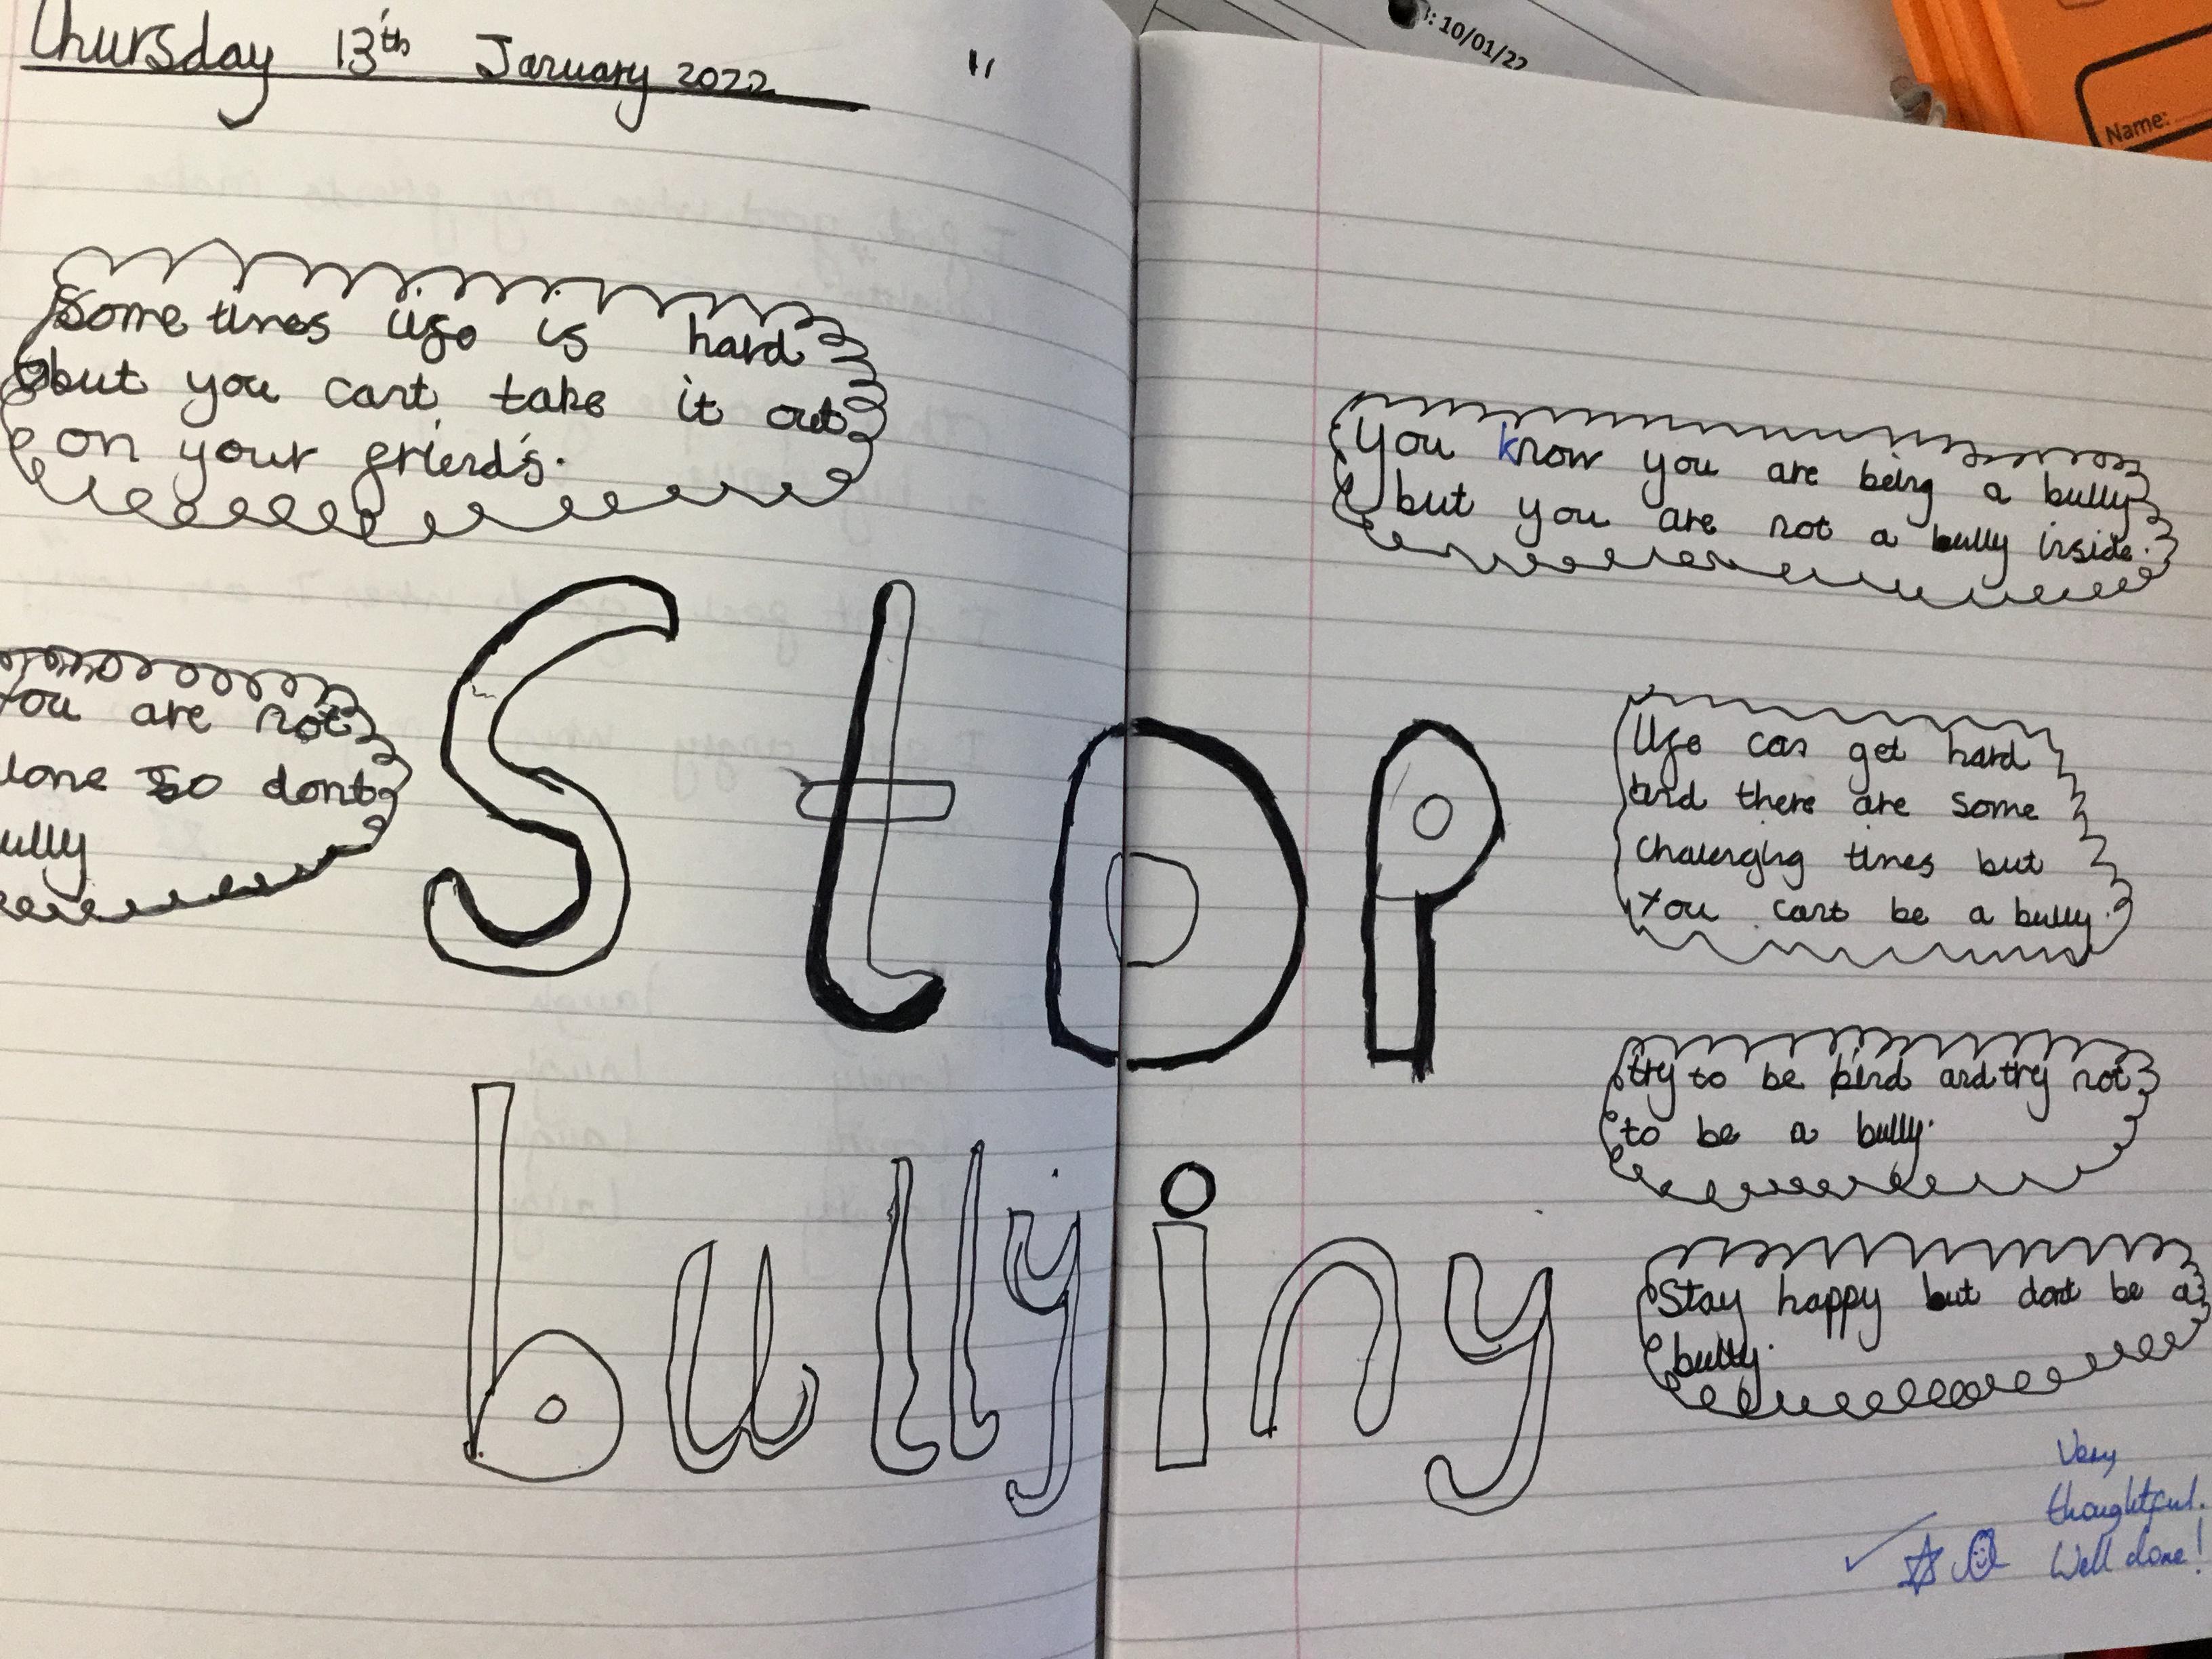 Thursday 13th January 2022
: 10/01/22
Name:
Sometimes life is hard
but you cant take it out
on your friend's.
You are not
lone so dont
ully
You know you are being a bully
but you are not a bully inside.
Life can get hard
and there are some
challenging times but
You cant be a bully.
try to be kind and try not
to be a bully.
Stay happy but dont be a
bully.
Stop
bullying
Very
thoughtful.
Well done!